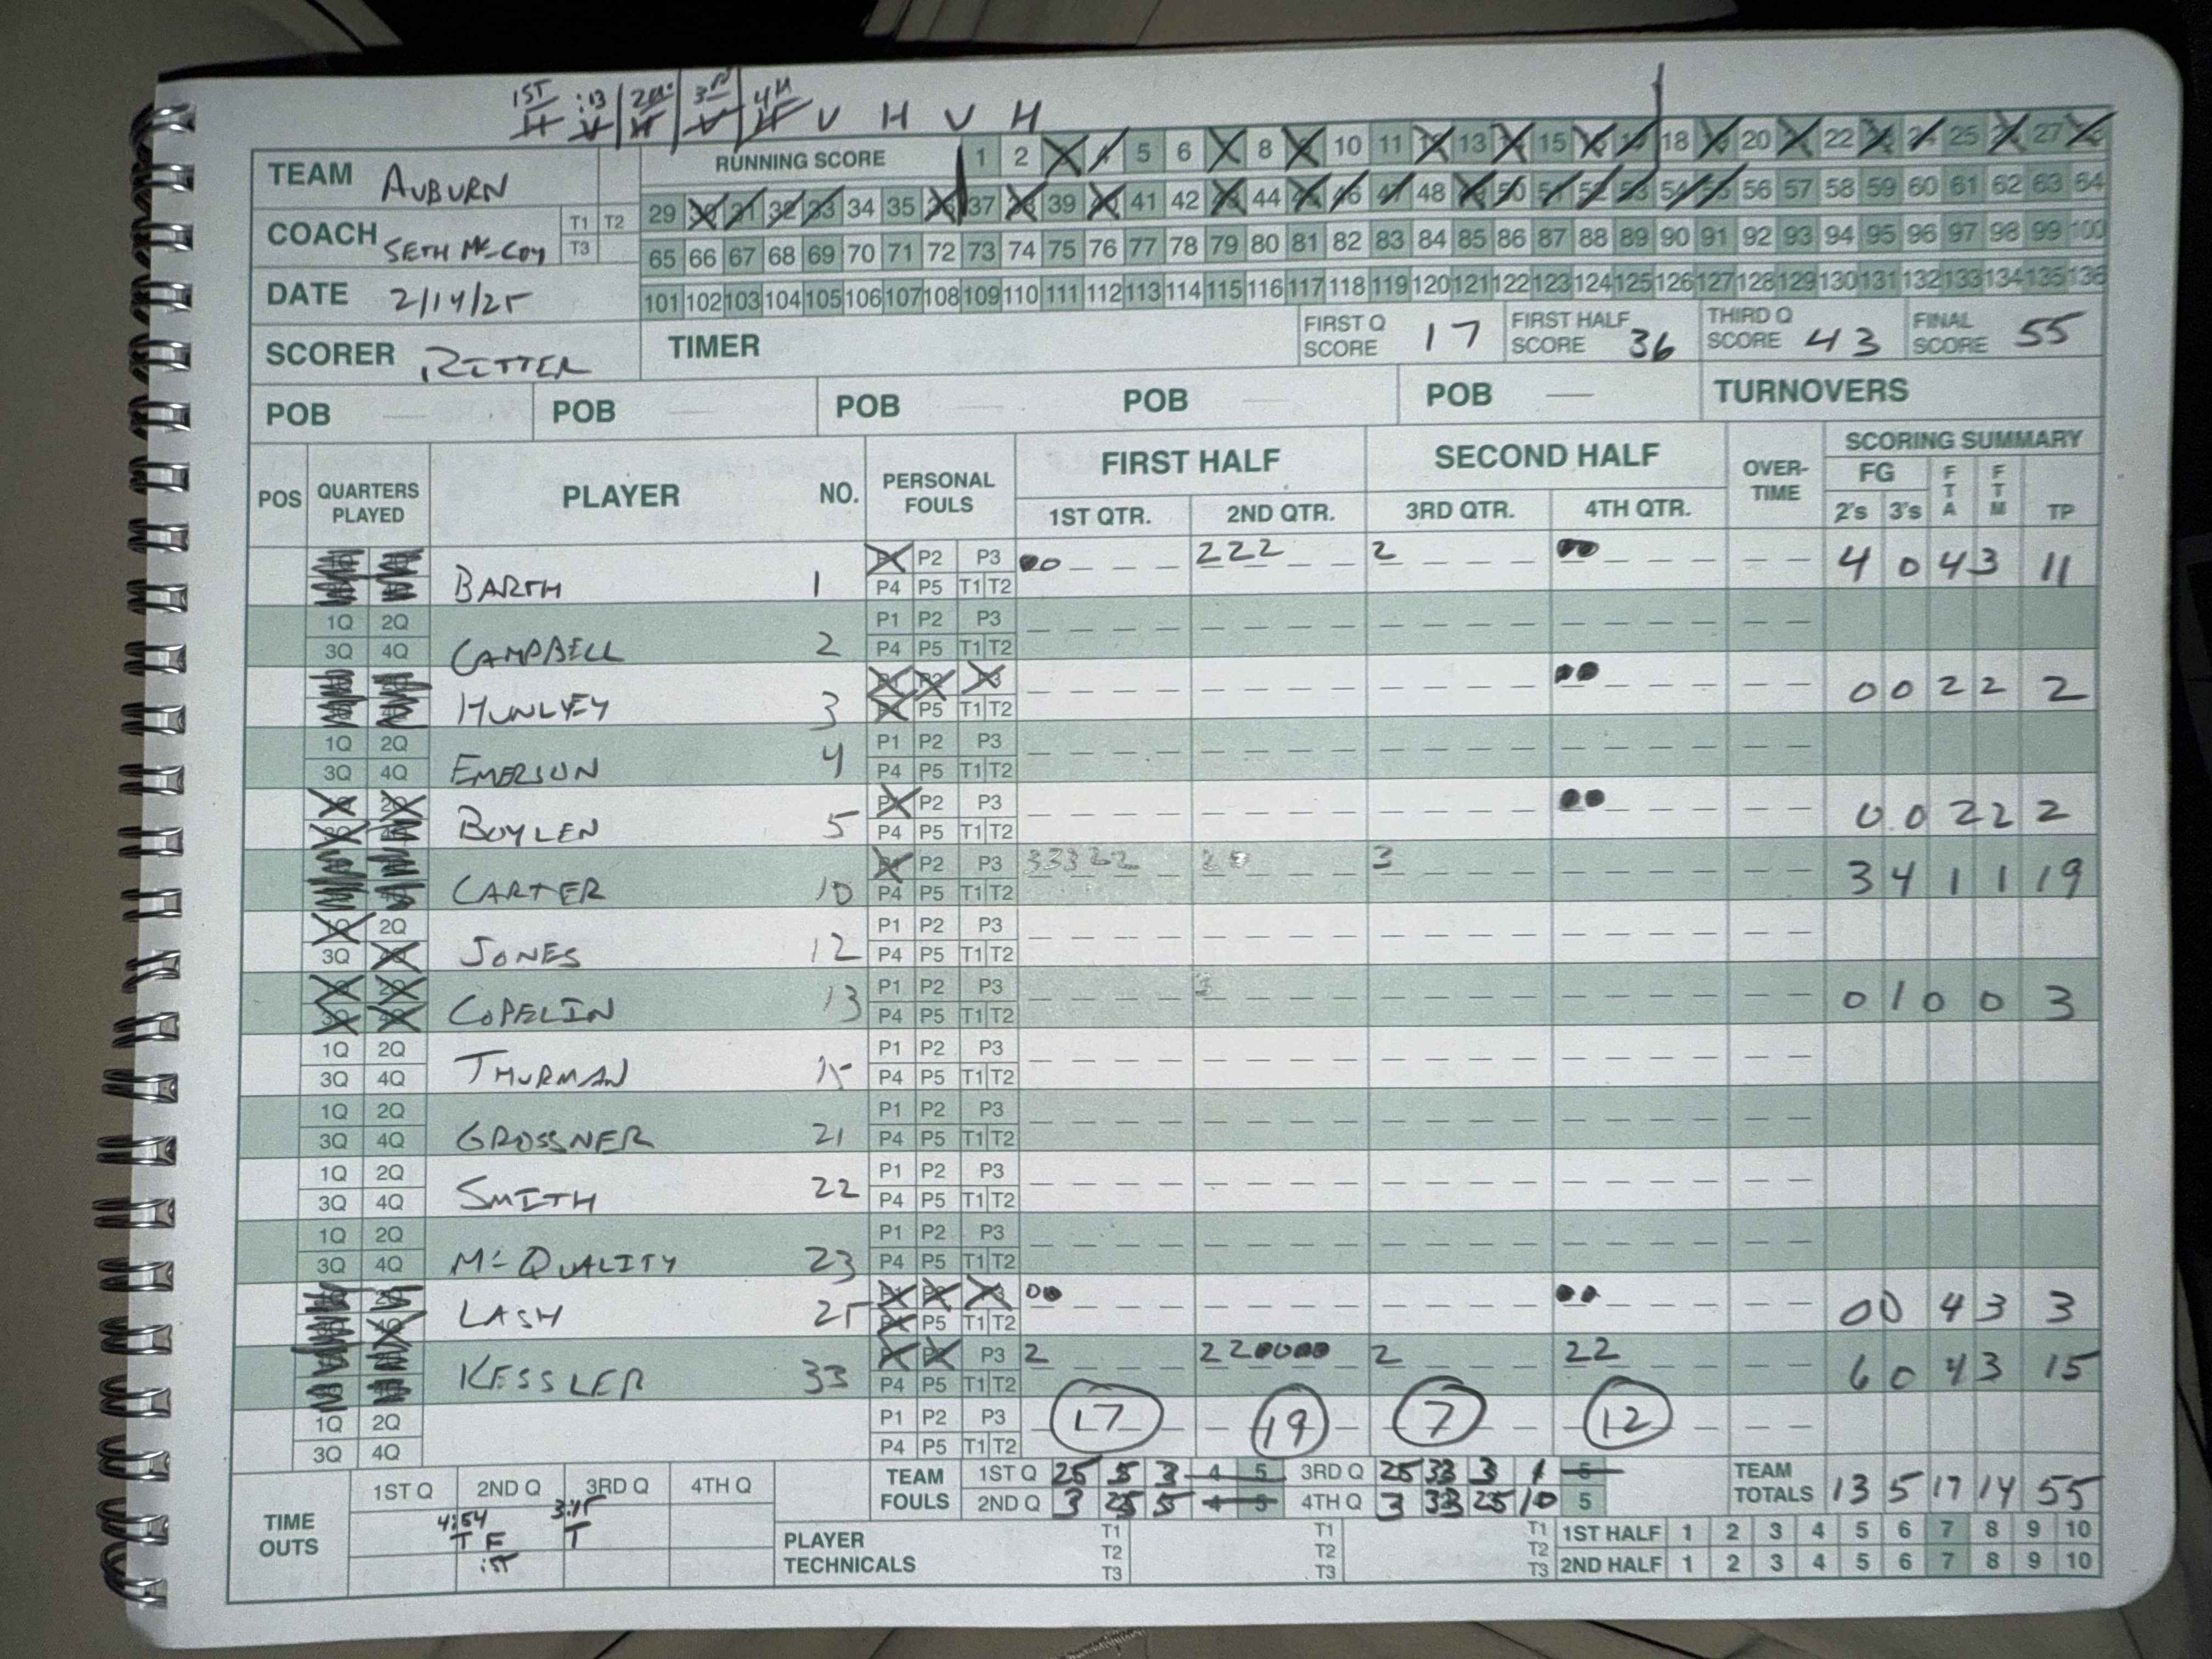 1ST :13 2ND 3RD 4TH
H V H V H V H V H
TEAM AUBURN
RUNNING SCORE 1 2 3 4 5 6 7 8 9 10 11 12 13 14 15 16 17 18 19 20 21 22 23 24 25 26 27 28
29 30 31 32 33 34 35 36 37 38 39 40 41 42 43 44 45 46 47 48 49 50 51 52 53 54 55 56 57 58 59 60 61 62 63 64
COACH SETH McCOY T1 T2 T3
65 66 67 68 69 70 71 72 73 74 75 76 77 78 79 80 81 82 83 84 85 86 87 88 89 90 91 92 93 94 95 96 97 98 99 100
DATE 2/14/25
101 102 103 104 105 106 107 108 109 110 111 112 113 114 115 116 117 118 119 120 121 122 123 124 125 126 127 128 129 130 131 132 133 134 135 136
SCORER RITTER
TIMER
FIRST Q SCORE 17 FIRST HALF SCORE 36 THIRD Q SCORE 43 FINAL SCORE 55
POB — POB — POB — POB — POB — TURNOVERS
POS QUARTERS PLAYED PLAYER NO. PERSONAL FOULS FIRST HALF SECOND HALF OVER-TIME SCORING SUMMARY
1ST QTR. 2ND QTR. 3RD QTR. 4TH QTR. FG 2's 3's FTA FTM TP
BARTH 1 P1 P2 P3 222 2 4 0 4 3 11
P4 P5 T1 T2
1Q 2Q CAMPBELL 2 P1 P2 P3
3Q 4Q P4 P5 T1 T2
HUNLEY 3 P1 P2 P3 0 0 2 2 2
P4 P5 T1 T2
1Q 2Q EMERSON 4 P1 P2 P3
3Q 4Q P4 P5 T1 T2
1Q 2Q BOYLEN 5 P1 P2 P3 0 0 2 2 2
3Q 4Q P4 P5 T1 T2
CARTER 10 P1 P2 P3 33322 2 3 3 4 1 1 19
P4 P5 T1 T2
1Q 2Q JONES 12 P1 P2 P3
3Q 4Q P4 P5 T1 T2
1Q 2Q COPELIN 13 P1 P2 P3 3 0 1 0 0 3
3Q 4Q P4 P5 T1 T2
1Q 2Q THURMAN 15 P1 P2 P3
3Q 4Q P4 P5 T1 T2
1Q 2Q GROSSNER 21 P1 P2 P3
3Q 4Q P4 P5 T1 T2
1Q 2Q SMITH 22 P1 P2 P3
3Q 4Q P4 P5 T1 T2
1Q 2Q McQUALITY 23 P1 P2 P3
3Q 4Q P4 P5 T1 T2
LASH 25 P1 P2 P3 0 0 4 3 3
P4 P5 T1 T2
KESSLER 33 P1 P2 P3 2 22 2 22 6 0 4 3 15
P4 P5 T1 T2
1Q 2Q P1 P2 P3 17 19 7 12
3Q 4Q P4 P5 T1 T2
TIME OUTS 1ST Q 2ND Q 3RD Q 4TH Q
4:54 3:15
T F T
:15
TEAM FOULS 1ST Q 25 5 3 4 5 3RD Q 25 33 3 1 5
2ND Q 3 25 5 4 5 4TH Q 3 33 25 10 5
TEAM TOTALS 13 5 17 14 55
PLAYER TECHNICALS T1 T2 T3 T1 T2 T3 T1 T2 T3
1ST HALF 1 2 3 4 5 6 7 8 9 10
2ND HALF 1 2 3 4 5 6 7 8 9 10